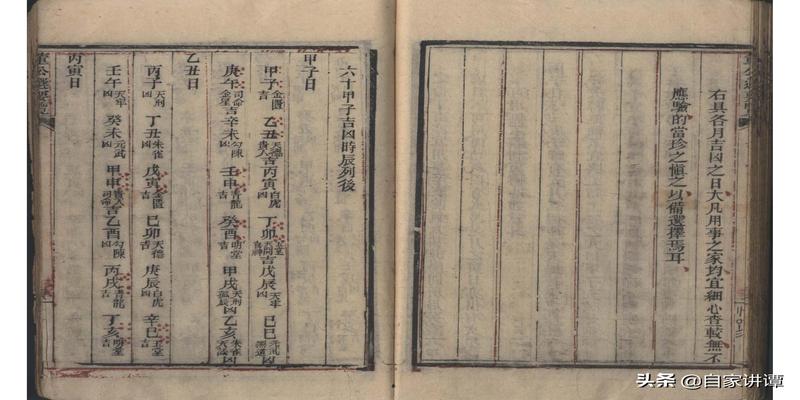 右具各月吉凶之日大凡用事之家均宜細心查載無不
應驗的當珍之慎之以備選擇焉耳
六十甲子吉凶時辰列後
甲子日
甲子金匱吉 乙丑天德貴人吉 丙寅白虎 丁卯玉堂吉 戊辰天牢 己巳元武黑道
庚午司命金星吉 辛未勾陳凶 壬申青龍吉 癸酉明堂吉 甲戌天刑孤辰 乙亥朱雀天訟凶
乙丑日
丙子天刑凶 丁丑朱雀凶 戊寅金匱吉 己卯天德吉 庚辰白虎凶 辛巳玉堂吉
壬午天牢凶 癸未元武凶 甲申貴人司命吉 乙酉勾陳凶 丙戌青龍吉 丁亥明堂吉
丙寅日
董公選
头条 @自家讲谭